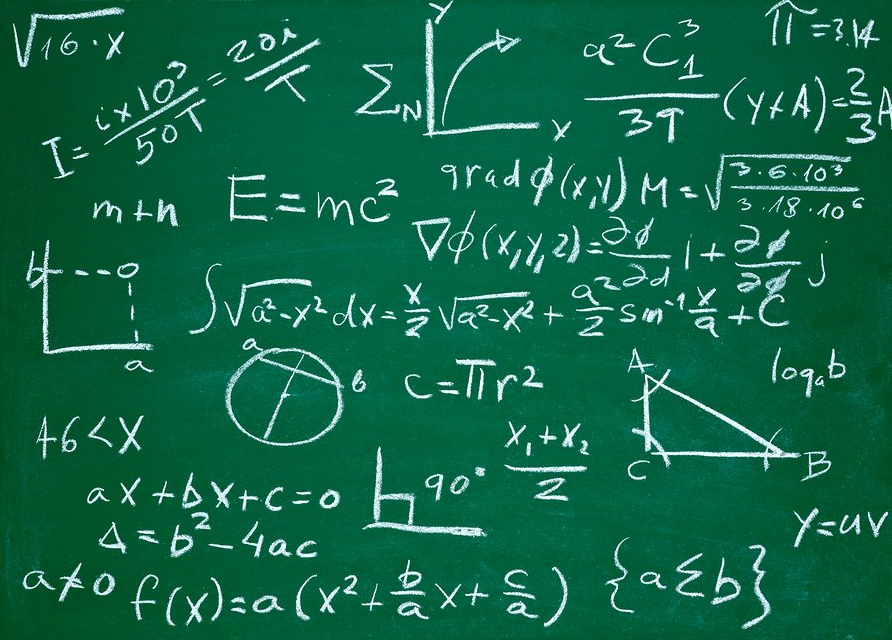 √16·x
I = i×10³/50T = 20i/T
Σ_N
y
x
a²C₁³/3T (y+A) = 2/3 A
π = 3.14
m+n
E = mc²
grad ϕ(x,y) M = √(3·6·10³/3·18·10⁶)
∇ϕ(x,y,z) = ∂ϕ/∂d i + ∂ϕ/∂ϕ j
b
a
∫√a²-x² dx = x/2 √a²-x² + a²/2 sin⁻¹ x/a + C
a
b
c = πr²
A
C
B
logₐb
+6 < X
90°
x₁+x₂/2
ax+bx+c=0
Δ = b²-4ac
y = uv
a≠0
f(x) = a(x² + b/a x + c/a)
{a Σ b}